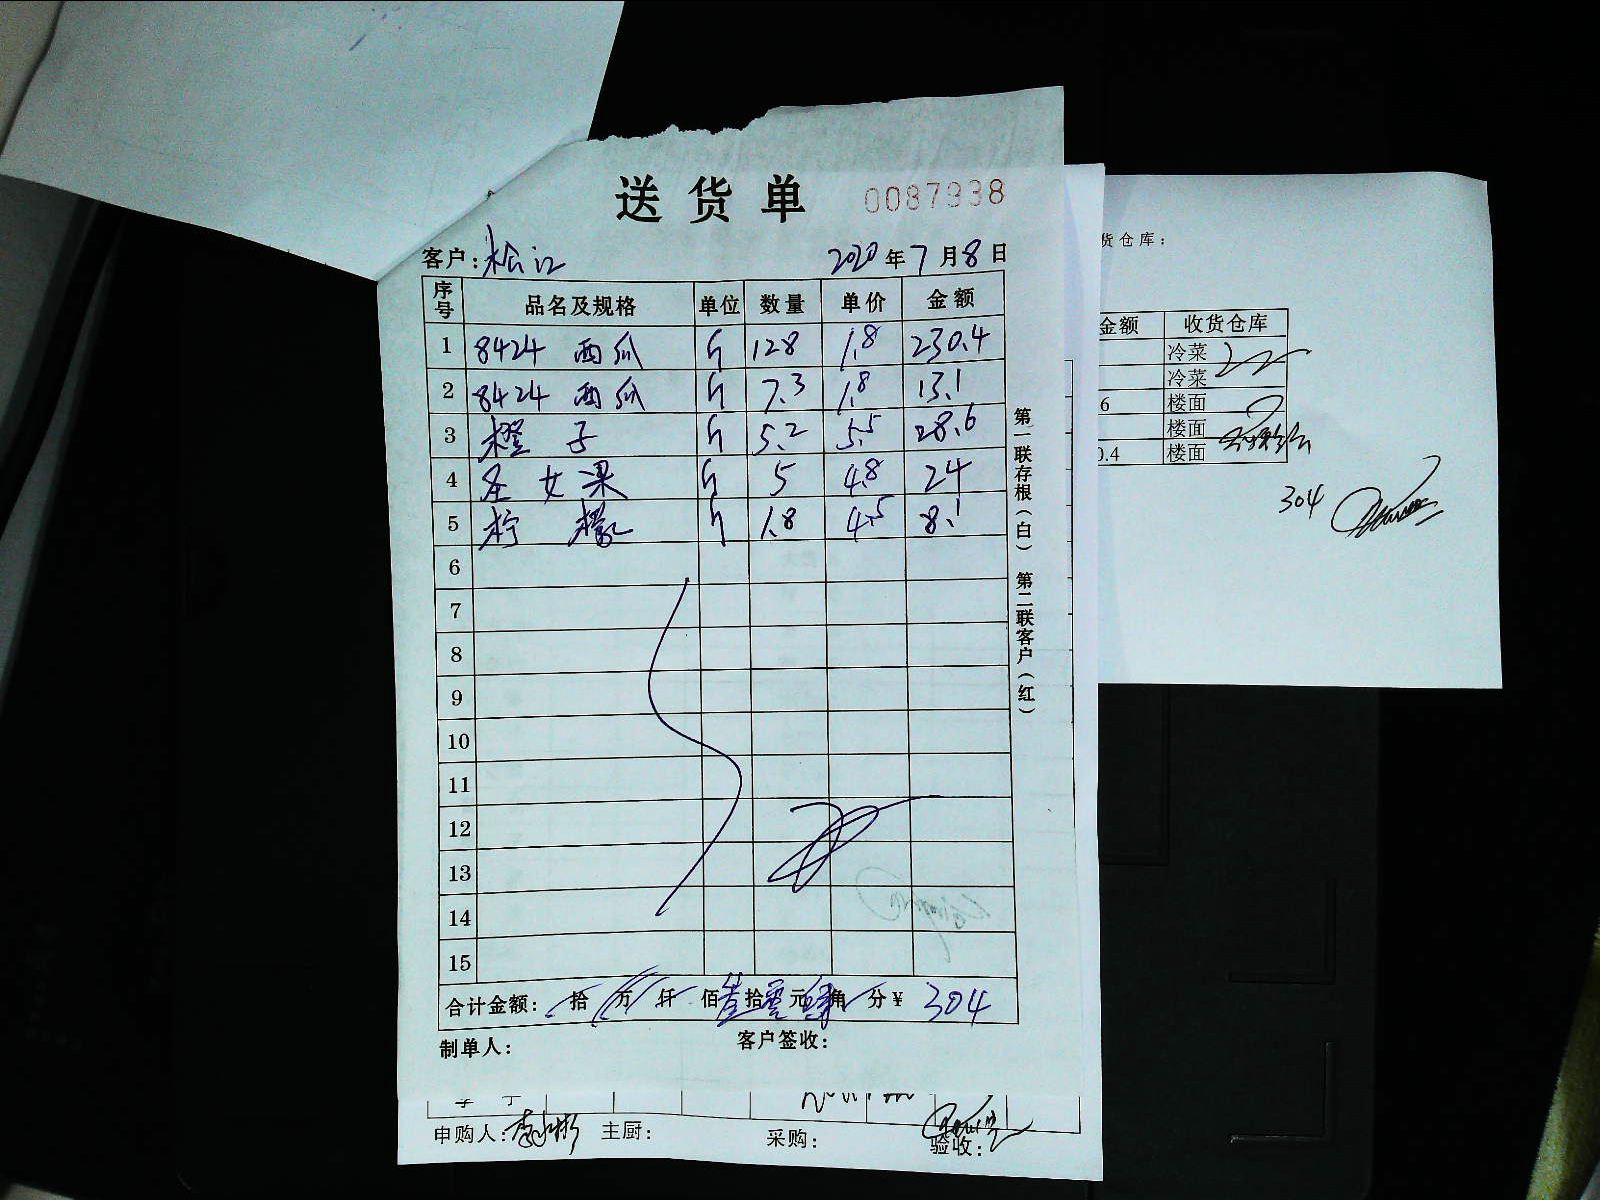 送货单 0087938
客户：松江 2020年7月8日
序号 品名及规格 单位 数量 单价 金额
1 8424 西瓜 斤 128 1.8 230.4
2 8424 西瓜 斤 7.3 1.8 13.1
3 橙子 斤 5.2 5.5 28.6
4 圣女果 斤 5 4.8 24
5 柠檬 斤 1.8 4.5 8.1
6
7
8
9
10
11
12
13
14
15
合计金额：拾万仟佰壹拾零元肆角分¥ 304
制单人： 客户签收：
第一联存根（白） 第二联客户（红）
申购人： 主厨： 采购： 验收：
货仓库：
金额 收货仓库
冷菜
冷菜
6 楼面
楼面
0.4 楼面
304